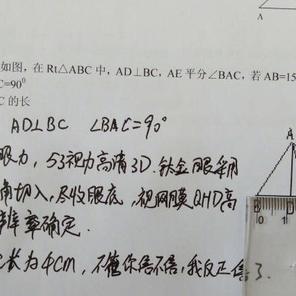 A
如图，在 Rt△ABC 中，AD⊥BC，AE 平分∠BAC，若 AB=15
C=90⁰
C 的长
AD⊥BC ∠BAC=90°
眼力，53视力高清3D.钛金眼采用
角切入，尽收眼底，视网膜QHD高
辨率确定.
长为4cm，不管你信不信，我反正信3.
A
B D
0 1